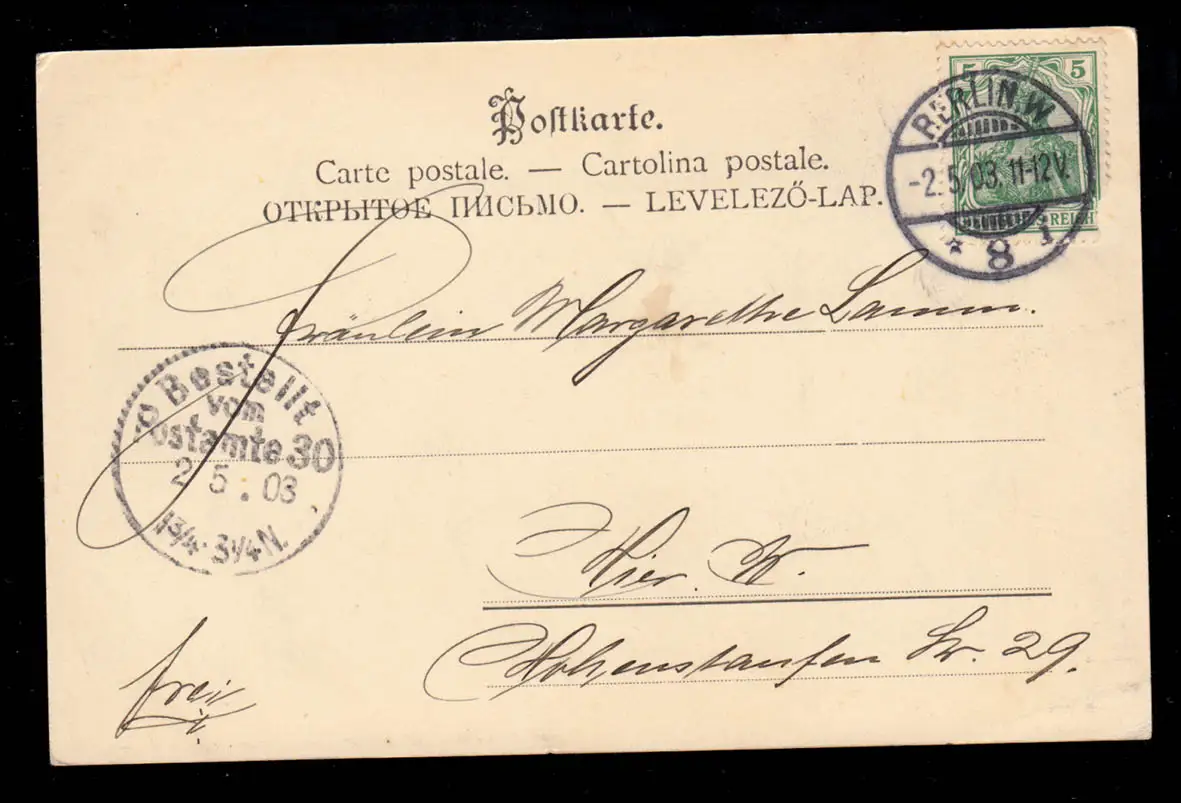 Postkarte.
Carte postale. — Cartolina postale.
ОТКРЫТОЕ ПИСЬМО. — LEVELEZŐ-LAP.
5 5
REICH
BERLIN. W.
-2. 5 03. 11-12V.
* 8 i
Fräulein Margarethe Lamm.
Bestellt
vom
Postamte 30
2 5 . 03
1¾-3¼N.
Hier. W.
Hohenstaufen Str. 29.
frei